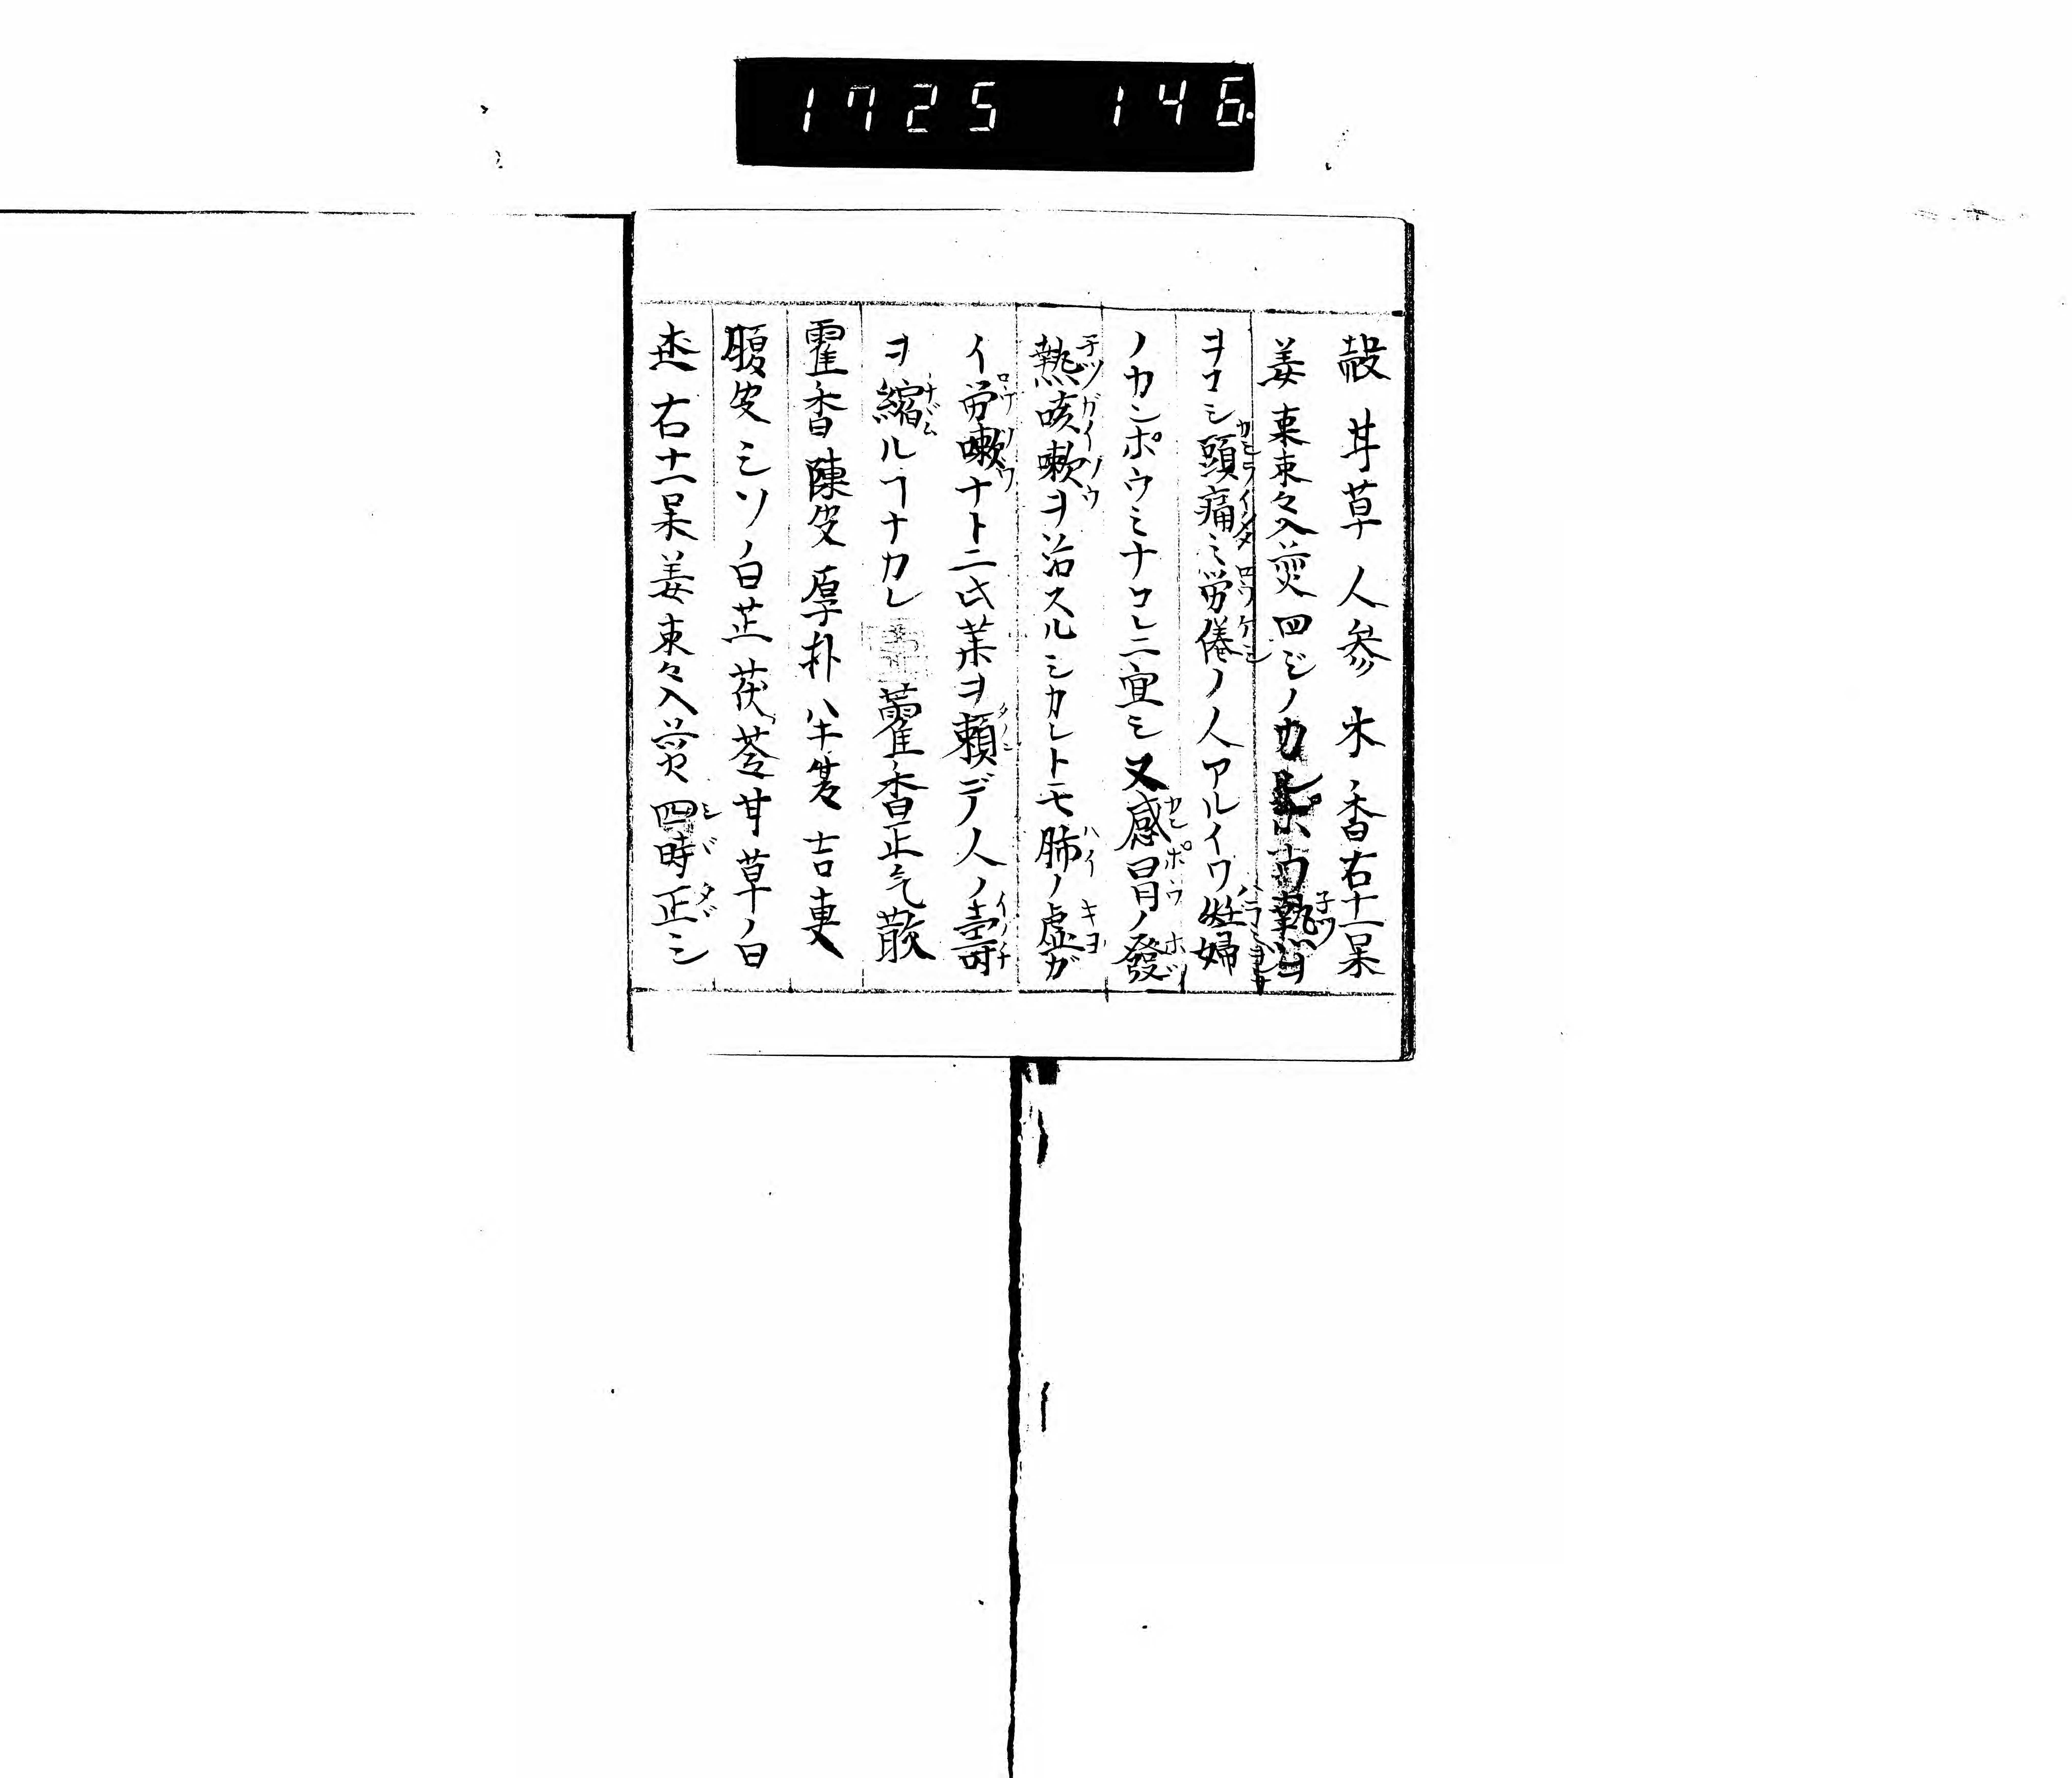 1725 146.
殻 甘草 人参 木香右十一味
姜 棗々入煎四ジノカ 内熱ヲ
ヲコシ頭痛ミ労倦ノ人アルイワ妊婦
ノカンボウミナコレニ宜シ又感冒ノ發
熱咳嗽ヲ治スルシカレトモ肺ノ虚ガ
イ労嗽ナトニ此薬ヲ頼デ人ノ壽
ヲ縮ルヿナカレ 藿香正气散
霍香 陳皮 厚朴 半夏 吉更
腹皮 シソ 白芷 茯苓 甘草 白
朮 右十一味姜棗々入煎 四時正シ